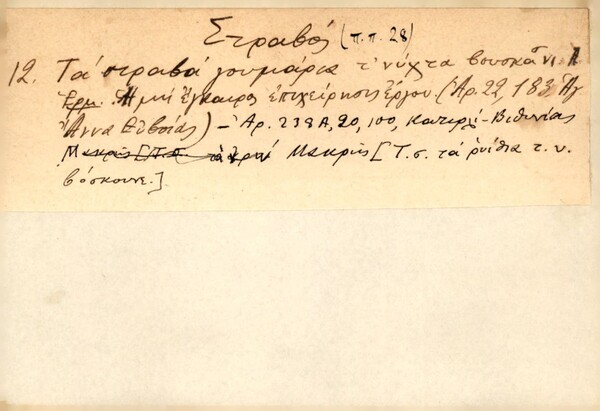 Στραβός (π.π. 28)
12. Τά στραβά γουμάρια τ' νύχτα βουσκᾶν.
Ἡ μή ἔγκαιρος ἐπιχείρησις ἔργου. (Ἀρ. 22, 183 Ἁγ
Ἄννα Εὐβοίας) – Ἀρ. 238Α, 20, 100, Κατιρλί-Βιθυνίας
Μακρῆς [Τ.σ. τά βούδια τ. ν.
βόσκουνε.]